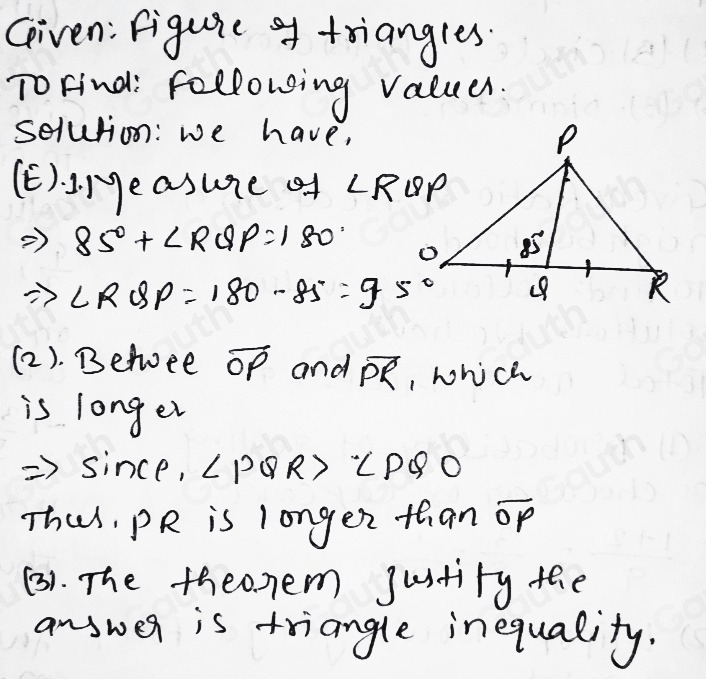 Given: Figure of triangles.
To Find: Following Values.
Solution: we have,
P
(E).1.Measure of ∠RQP
⇒ 85° + ∠RQP = 180°
O 85°
Q R
⇒ ∠RQP = 180 - 85 = 95°
(2). Betwee OP and PR, which
is longer
⇒ Since, ∠PQR > ∠PQO
Thus, PR is longer than OP
(3). The theorem justify the
answer is triangle inequality.
Gauth